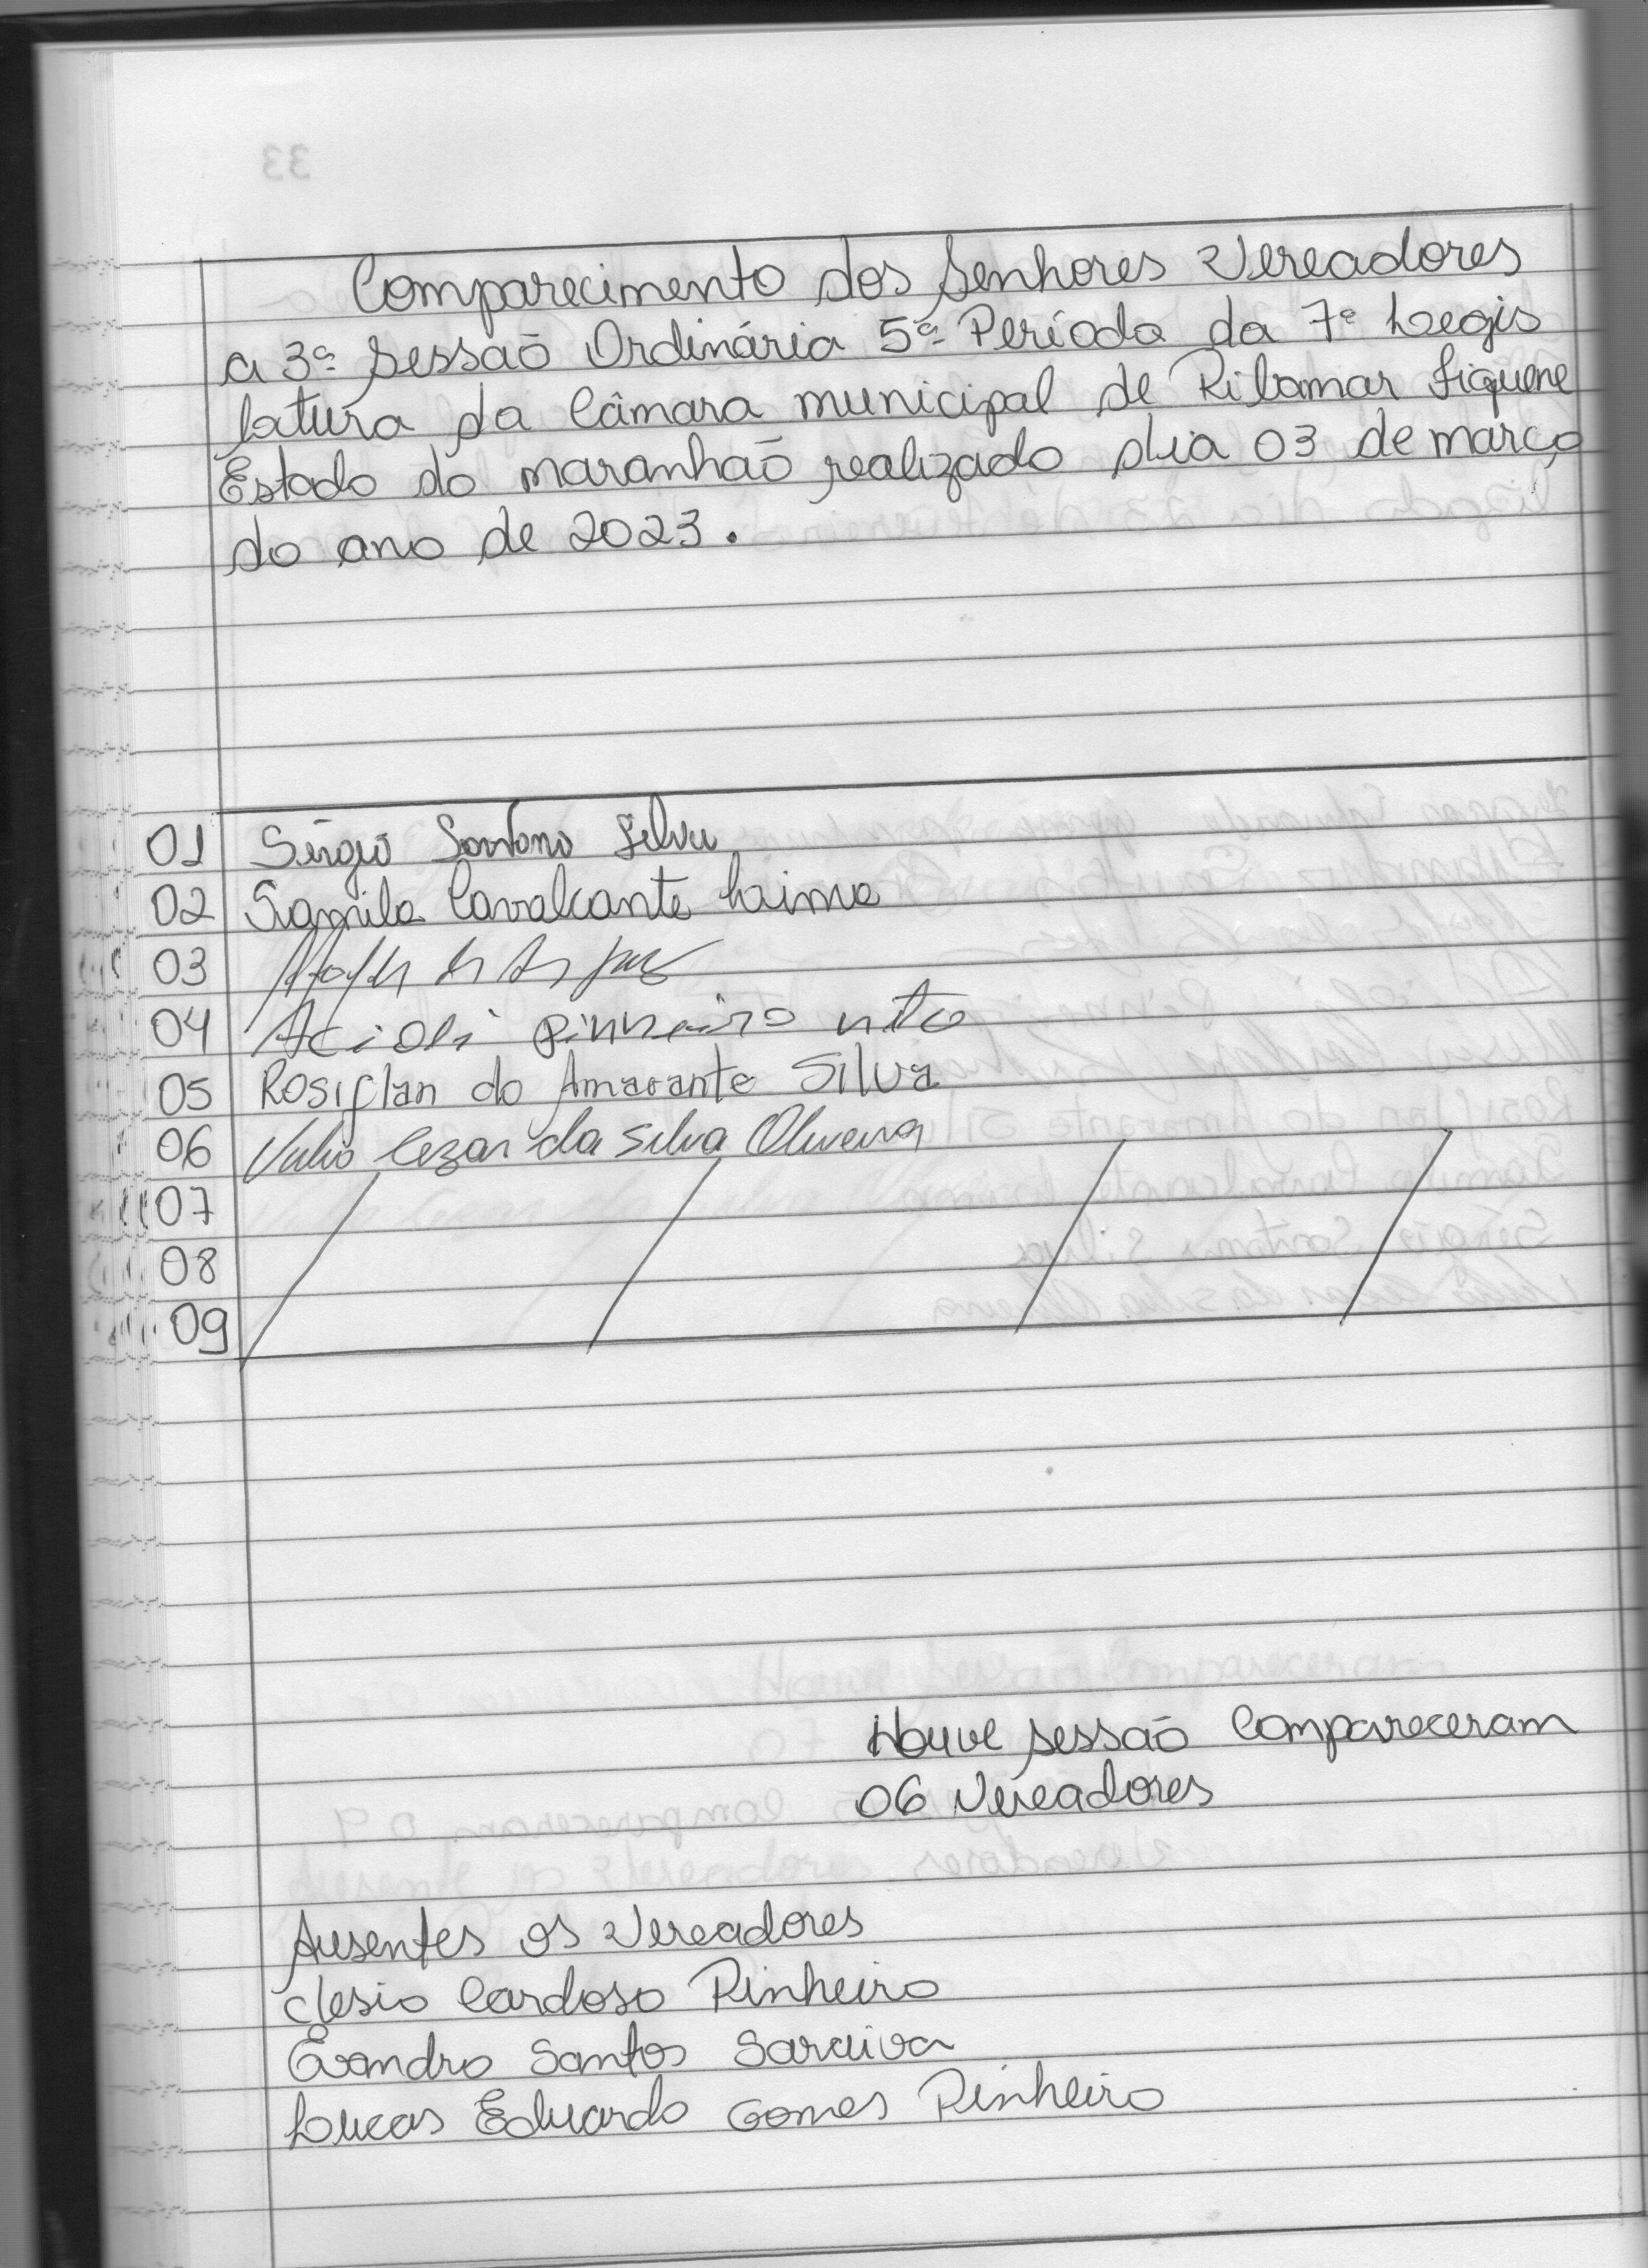 Comparecimento dos Senhores Vereadores
a 3ª Sessaõ Ordinária 5ª Período da 7ª Legis
latura da Câmara municipal de Ribamar Fiquene
Estado do maranhaõ realizado dia 03 de março
do ano de 2023.
01 Sérgio Santana Silva
02 Samila Cavalcante Laima
03
04 Acioli pinheiro neto
05 Rosiflan do Amarante Silva
06 Julio Cezar da Silva Oliveira
07
08
09
Houve sessão Compareceram
06 Vereadores
Ausentes os Vereadores
Clesio Cardoso Pinheiro
Evandro Santos Saraiva
Lucas Eduardo Gomes Pinheiro